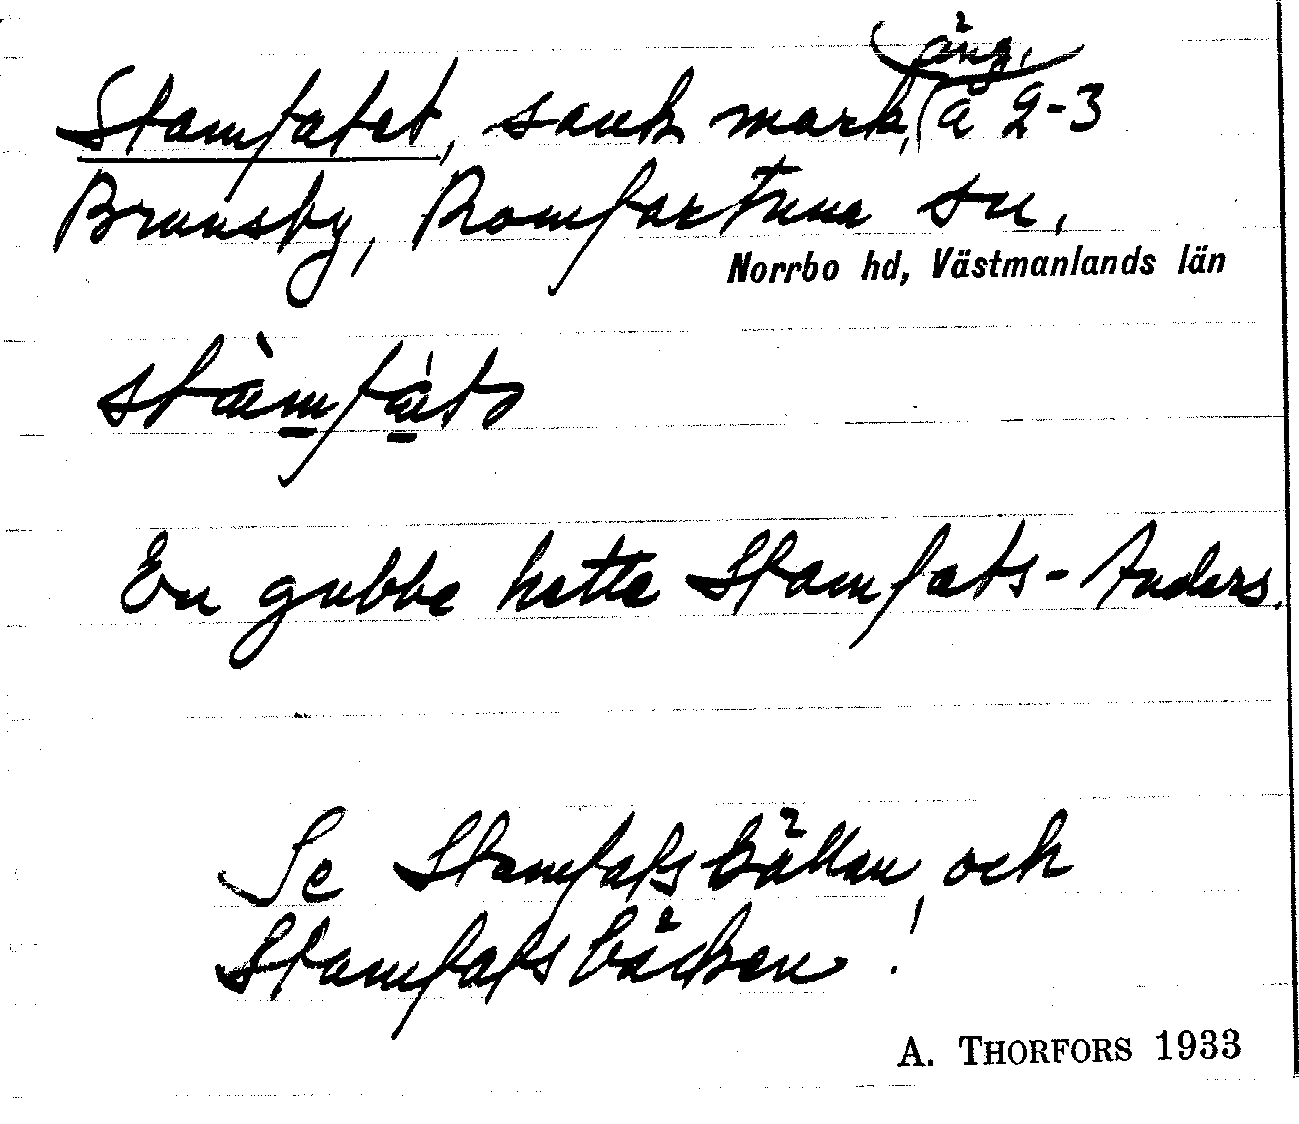 äng,
Stamfatet, sank mark, å 2-3
Brunsby, Romfartuna sn,
Norrbo hd, Västmanlands län
stàmfáts
En gubbe hette Stamfats-Anders.
Se Stamfatskällan och
Stamfatsbäcken!
A. THORFORS 1933